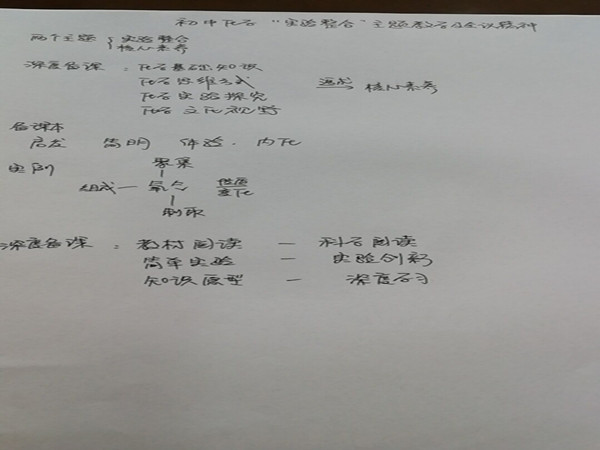 初中化学“实验整合”主题教学及会议精神
两个主题 { 实验整合
核心素养
深度备课：化学基础知识
化学思维方式 达成→ 核心素养
化学实验探究
化学文化视野
备课本
启发 简明 体验 内化
实例 聚集
组成—氧气 性质 变化
制取
深度备课：教材阅读 — 科学阅读
简单实验 — 实验创新
知识原型 — 深度学习